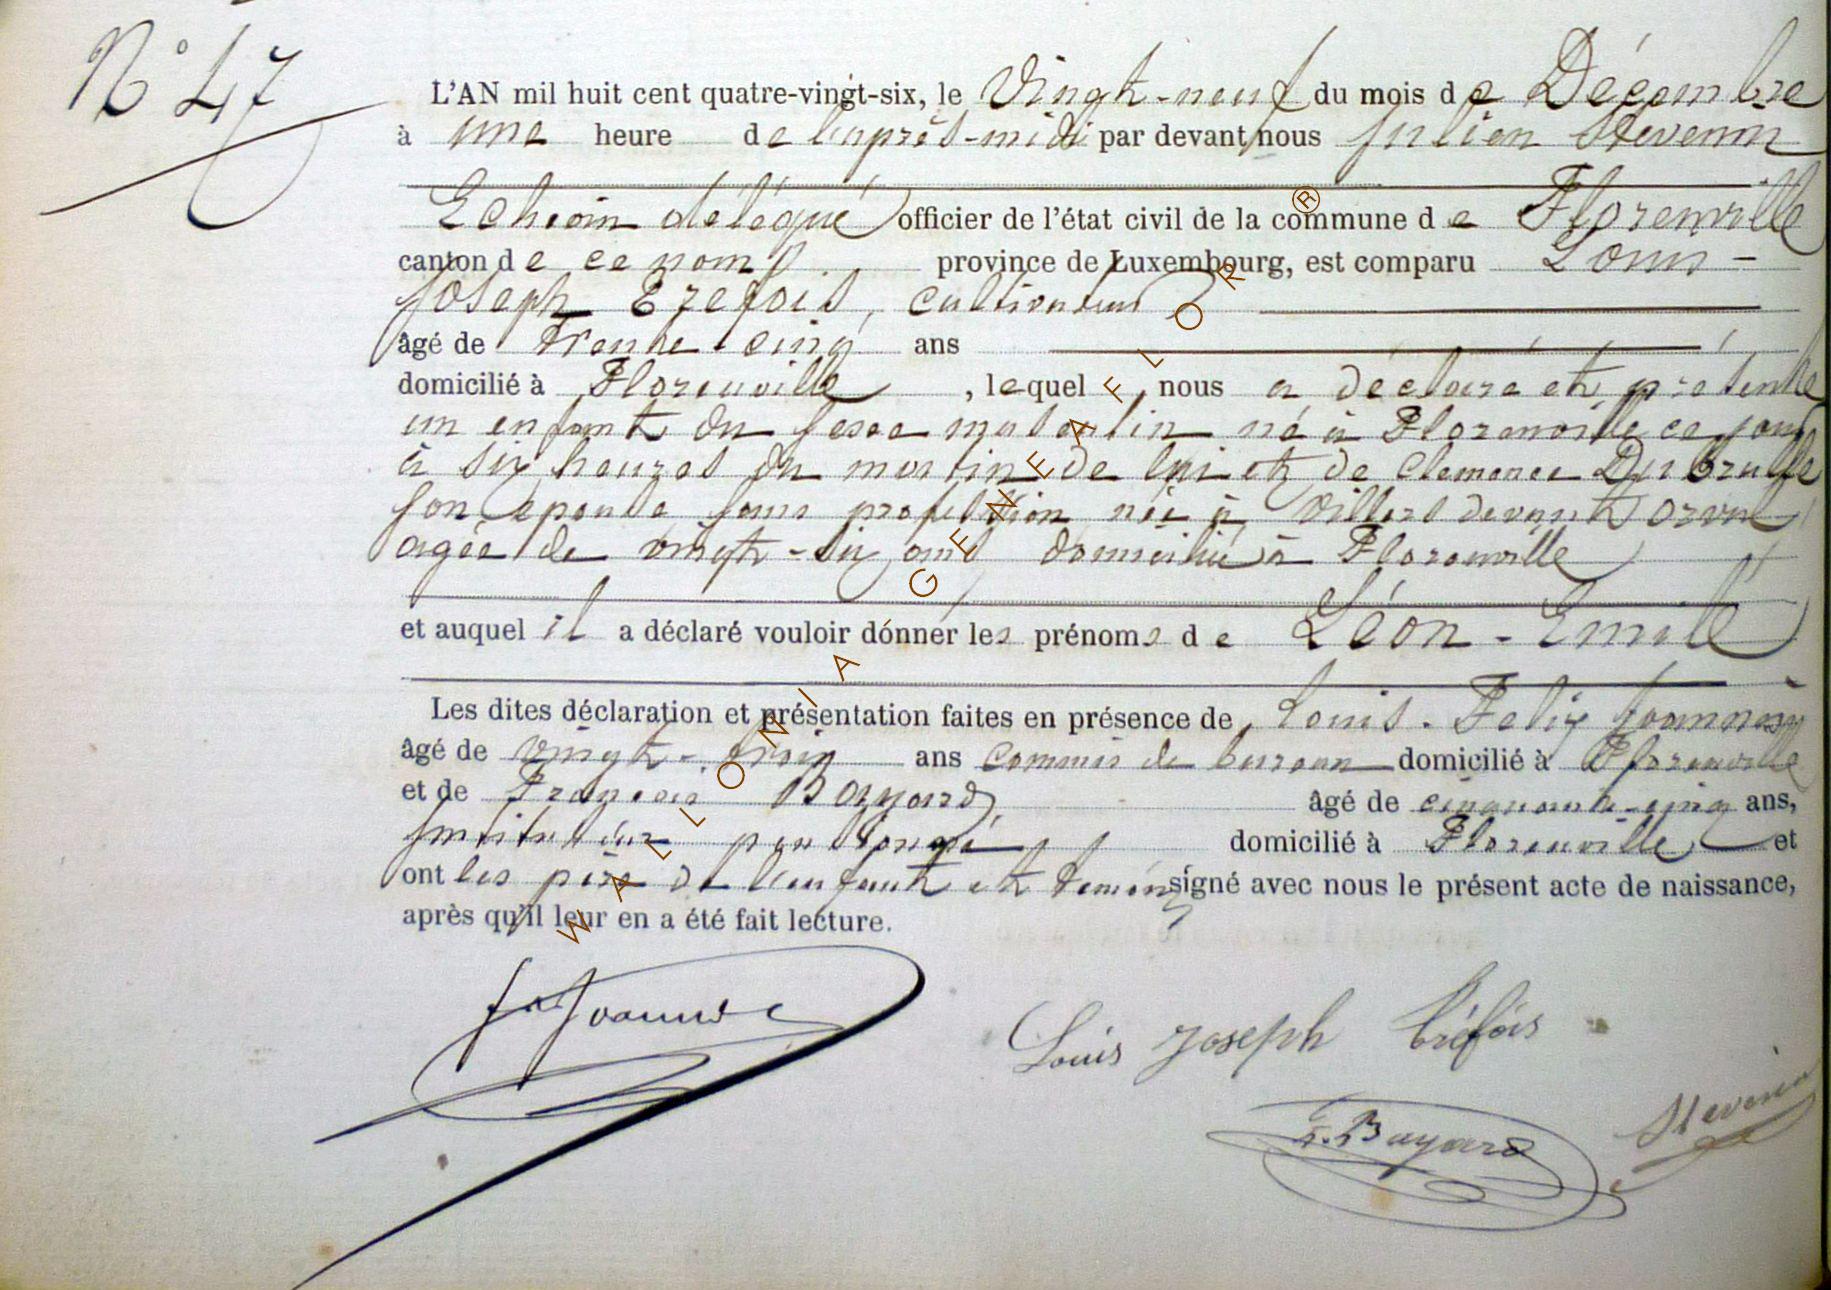 N° 47
L'AN mil huit cent quatre-vingt-six, le Vingt-neuf du mois de Décembre
à une heure de l'après-midi par devant nous Julien Stevenin
Echevin délégué officier de l'état civil de la commune de Florenville
canton de ce nom province de Luxembourg, est comparu Louis-
Joseph Tréfois, cultivateur
âgé de trente-cinq ans
domicilié à Florenville, lequel nous a déclaré et présenté
un enfant du sexe masculin né à Florenville ce jour
à six heures du matin de lui et de Clemence Dubrulle
son epouse sans profession née à Villers devant Orval
agée de vingt-six ans domiciliée à Florenville
et auquel il a déclaré vouloir donner les prénoms de Léon-Emile
Les dites déclaration et présentation faites en présence de Louis-Felix
âgé de vingt-trois ans commis de bureau domicilié à Florenville
et de François Bayard, âgé de cinquante-cinq ans,
Instituteur pensionné domicilié à Florenville et
ont les père de l'enfant et temoins signé avec nous le présent acte de naissance,
après qu'il leur en a été fait lecture.
Louis Joseph Tréfois
F. Bayard
Stevenin
WALLONIA GENEAFLOR ®